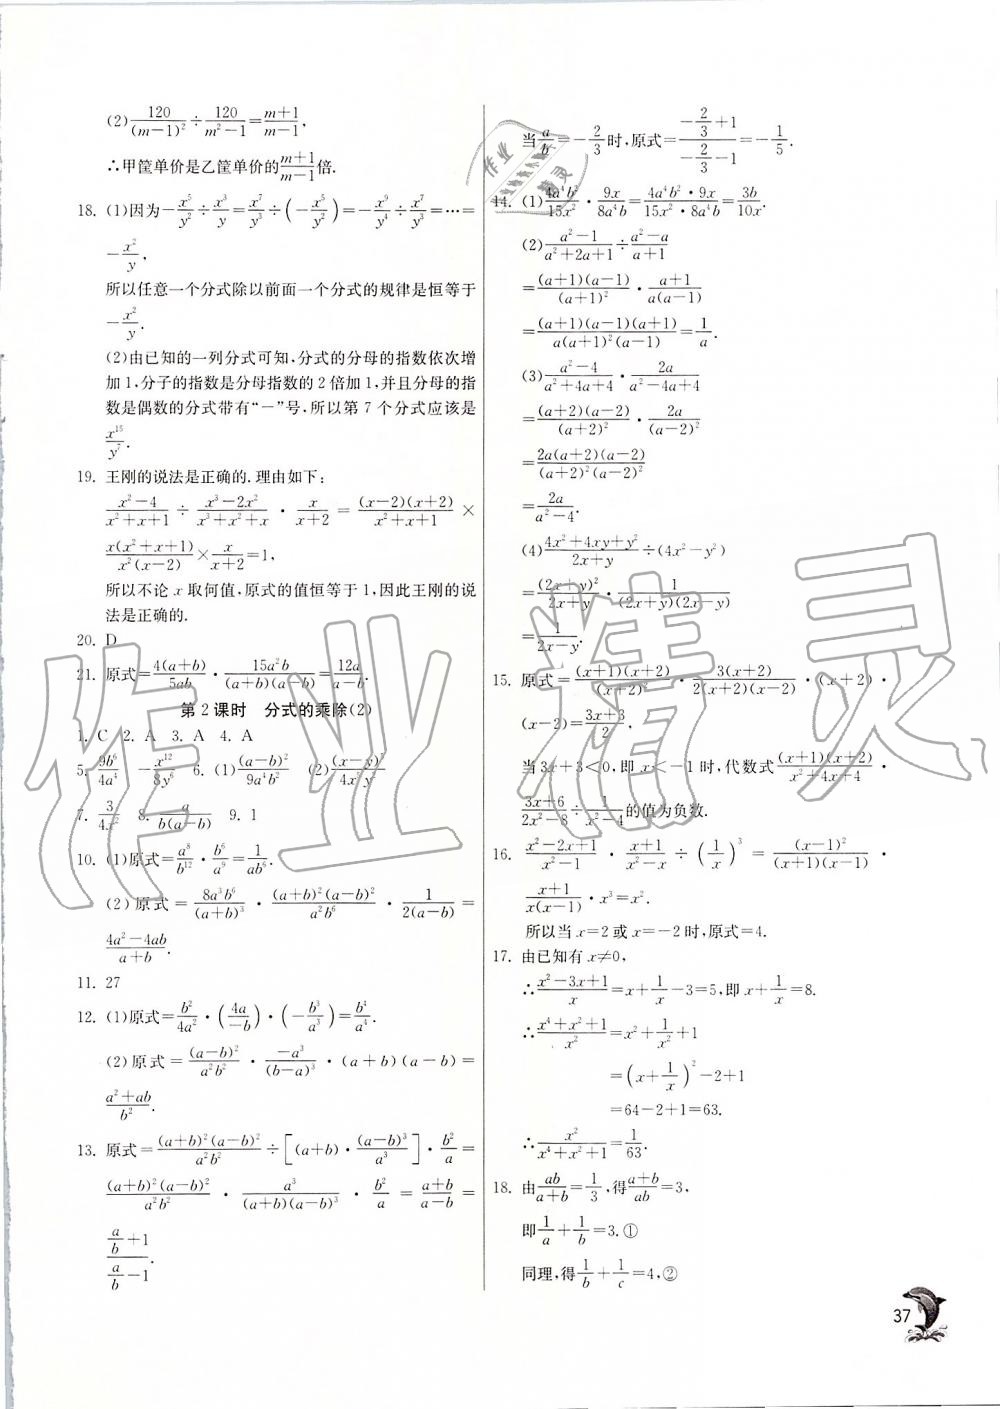 (2) 120/(m-1)² ÷ 120/(m²-1) = (m+1)/(m-1),
∴甲筐单价是乙筐单价的(m+1)/(m-1)倍.
18. (1)因为-x⁵/y² ÷ x³/y = x⁷/y³ ÷ (-x⁵/y²) = -x⁹/y⁴ ÷ x⁷/y³ = … =
-x²/y,
所以任意一个分式除以前面一个分式的规律是恒等于
-x²/y.
(2)由已知的一列分式可知,分式的分母的指数依次增
加1,分子的指数是分母指数的2倍加1,并且分母的指
数是偶数的分式带有“-”号,所以第7个分式应该是
x¹⁵/y⁷.
19. 王刚的说法是正确的.理由如下:
(x²-4)/(x²+x+1) ÷ (x³-2x²)/(x³+x²+x) · x/(x+2) = (x-2)(x+2)/(x²+x+1) ×
x(x²+x+1)/x²(x-2) × x/(x+2) = 1,
所以不论x取何值,原式的值恒等于1,因此王刚的说
法是正确的.
20. D
21. 原式=4(a+b)/5ab · 15a²b/(a+b)(a-b) = 12a/(a-b).
第2课时 分式的乘除(2)
1. C 2. A 3. A 4. A
5. 9b⁶/4a⁴ -x¹²/8y⁶ 6. (1)(a-b)²/9a⁴b² (2)(x-y)²/4x²y²
7. 3/4x² 8. a/b(a-b) 9. 1
10. (1)原式=a⁸/b¹² · b⁶/a⁹ · = 1/ab⁶.
(2)原式=8a³b⁶/(a+b)³ · (a+b)²(a-b)²/a²b⁶ · 1/2(a-b) =
(4a²-4ab)/(a+b).
11. 27
12. (1)原式=b²/4a² · (4a/-b) · (-b³/a³) = b⁴/a⁴.
(2)原式=(a-b)²/a²b² · -a³/(b-a)³ · (a+b)(a-b)=
(a²+ab)/b².
13. 原式=(a+b)²(a-b)²/a²b² ÷ [(a+b)·(a-b)³/a³] · b²/a =
(a+b)²(a-b)²/a²b² · a³/(a+b)(a-b)³ · b²/a = (a+b)/(a-b) =
(a/b+1)/(a/b-1).
当a/b=-2/3时,原式=(-2/3+1)/(-2/3-1)=-1/5.
14. (1)4a⁴b²/15x² · 9x/8a⁴b = 4a⁴b²·9x/15x²·8a⁴b = 3b/10x.
(2)(a²-1)/(a²+2a+1) ÷ (a²-a)/(a+1)
=(a+1)(a-1)/(a+1)² · (a+1)/a(a-1)
=(a+1)(a-1)(a+1)/a(a+1)²(a-1) = 1/a.
(3)(a²-4)/(a²+4a+4) · 2a/(a²-4a+4)
=(a+2)(a-2)/(a+2)² · 2a/(a-2)²
=2a(a+2)(a-2)/(a+2)²(a-2)²
=2a/(a²-4).
(4)(4x²+4xy+y²)/(2x+y) ÷ (4x²-y²)
=(2x+y)²/(2x+y) · 1/(2x+y)(2x-y)
=1/(2x-y).
15. 原式=(x+1)(x+2)/(x+2)² · 3(x+2)/2(x+2)(x-2) · (x+2) ·
(x-2)=(3x+3)/2,
当3x+3<0,即x<-1时,代数式(x+1)(x+2)/(x²+4x+4) ·
(3x+6)/(2x²-8) ÷ 1/(x²-4)的值为负数.
16. (x²-2x+1)/(x²-1) · (x+1)/(x²-x) ÷ (1/x)³ = (x-1)²/(x+1)(x-1) ·
(x+1)/x(x-1) · x³=x².
所以当x=2或x=-2时,原式=4.
17. 由已知有x≠0,
∴(x²-3x+1)/x=x+1/x-3=5,即x+1/x=8.
∴(x⁴+x²+1)/x²=x²+1/x²+1
=(x+1/x)²-2+1
=64-2+1=63.
∴x²/(x⁴+x²+1)=1/63.
18. 由ab/(a+b)=1/3,得(a+b)/ab=3,
即1/a+1/b=3.①
同理,得1/b+1/c=4,②
37
作业精灵
作业
精灵